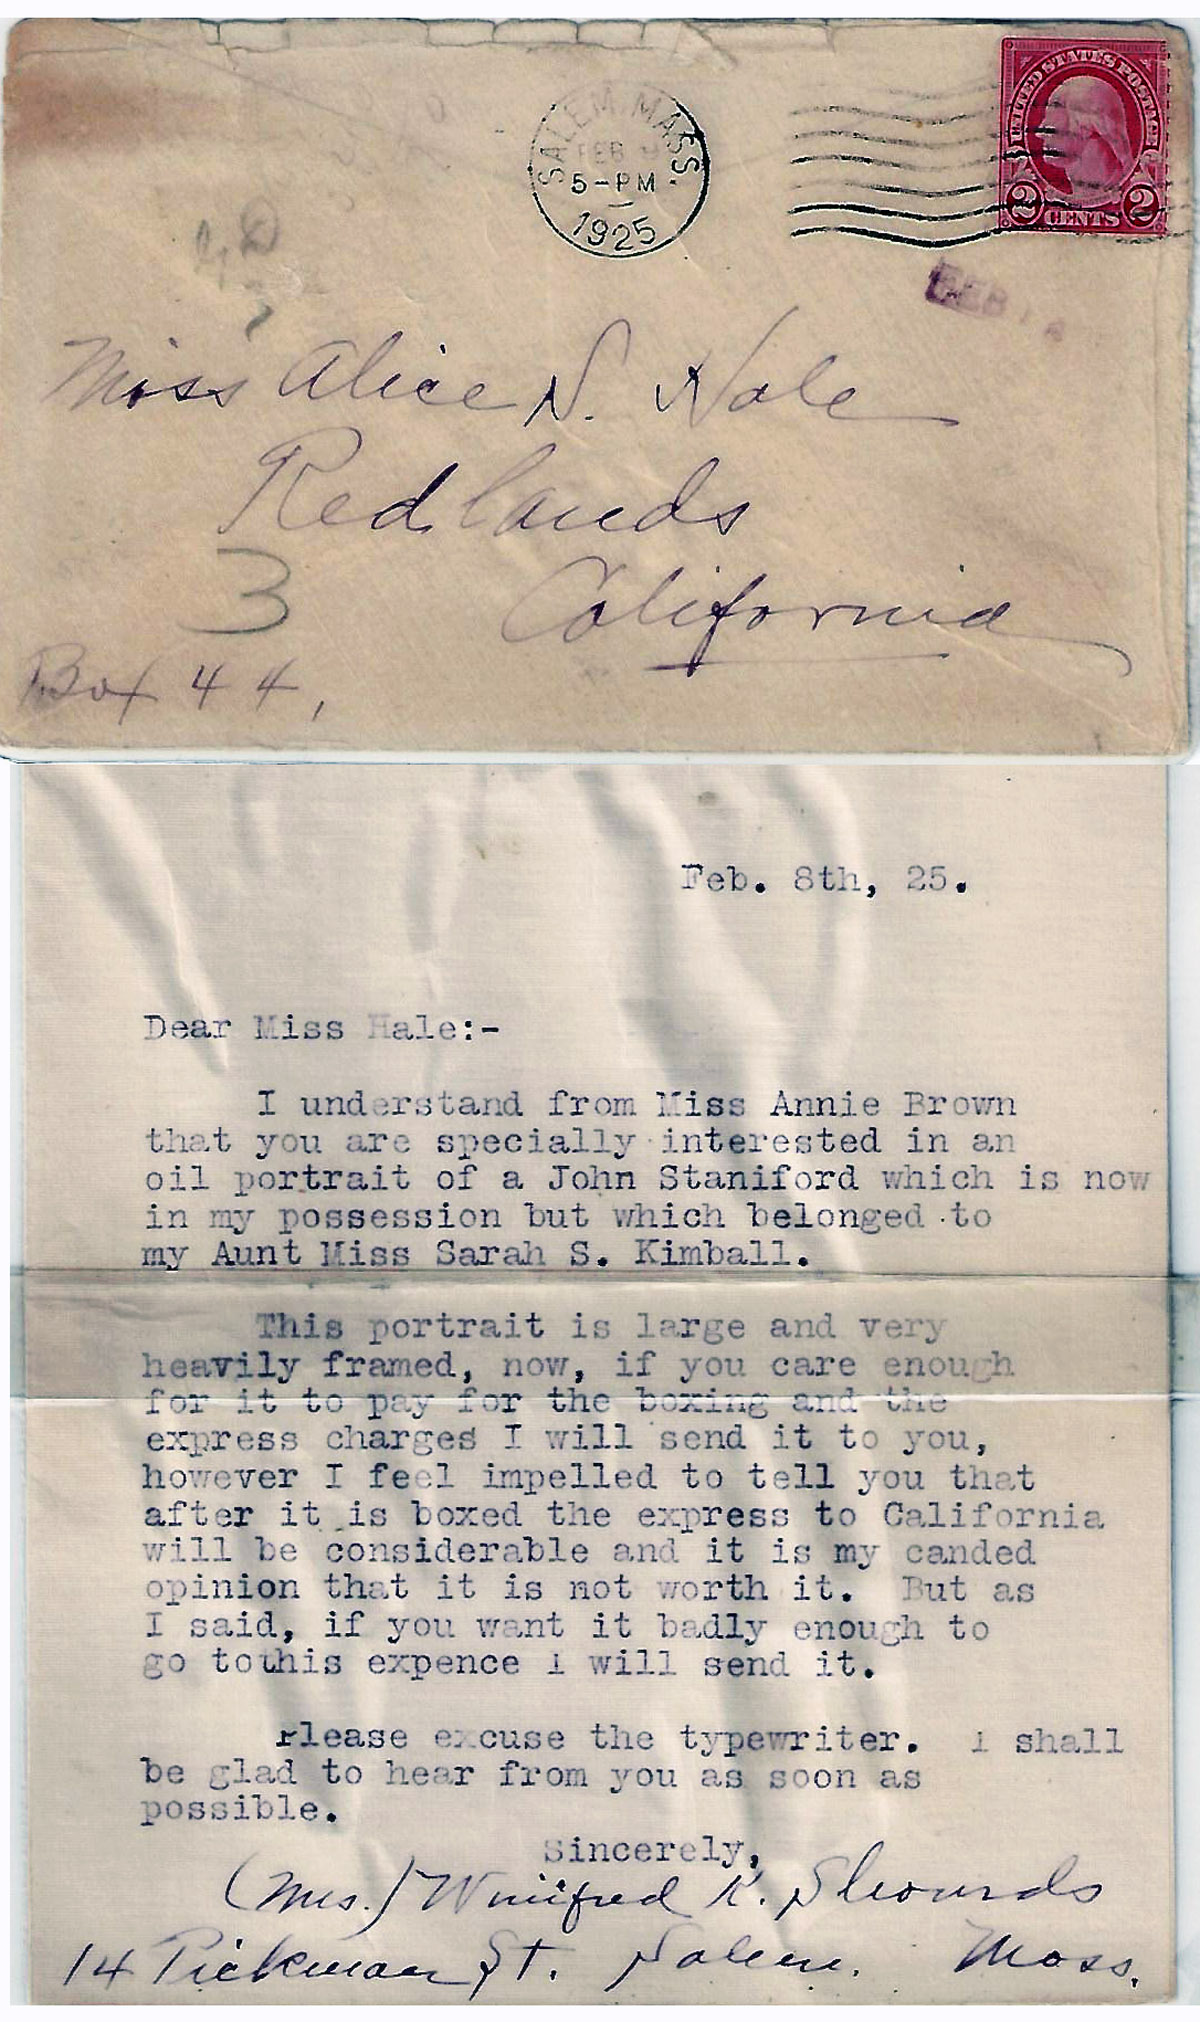 SALEM MASS.
FEB
5-PM
1925
UNITED STATES POSTAGE
2 CENTS 2
FEB
Miss Alice S. Hale
Redlands
3
California
Box 44,
Feb. 8th, 25.
Dear Miss Hale:-
I understand from Miss Annie Brown
that you are specially interested in an
oil portrait of a John Staniford which is now
in my possession but which belonged to
my Aunt Miss Sarah S. Kimball.
This portrait is large and very
heavily framed, now, if you care enough
for it to pay for the boxing and the
express charges I will send it to you,
however I feel impelled to tell you that
after it is boxed the express to California
will be considerable and it is my canded
opinion that it is not worth it. But as
I said, if you want it badly enough to
go tothis expence I will send it.
Please excuse the typewriter. I shall
be glad to hear from you as soon as
possible.
Sincerely,
(Mrs.) Winifred K.
14 Pickman St. Salem. Mass.